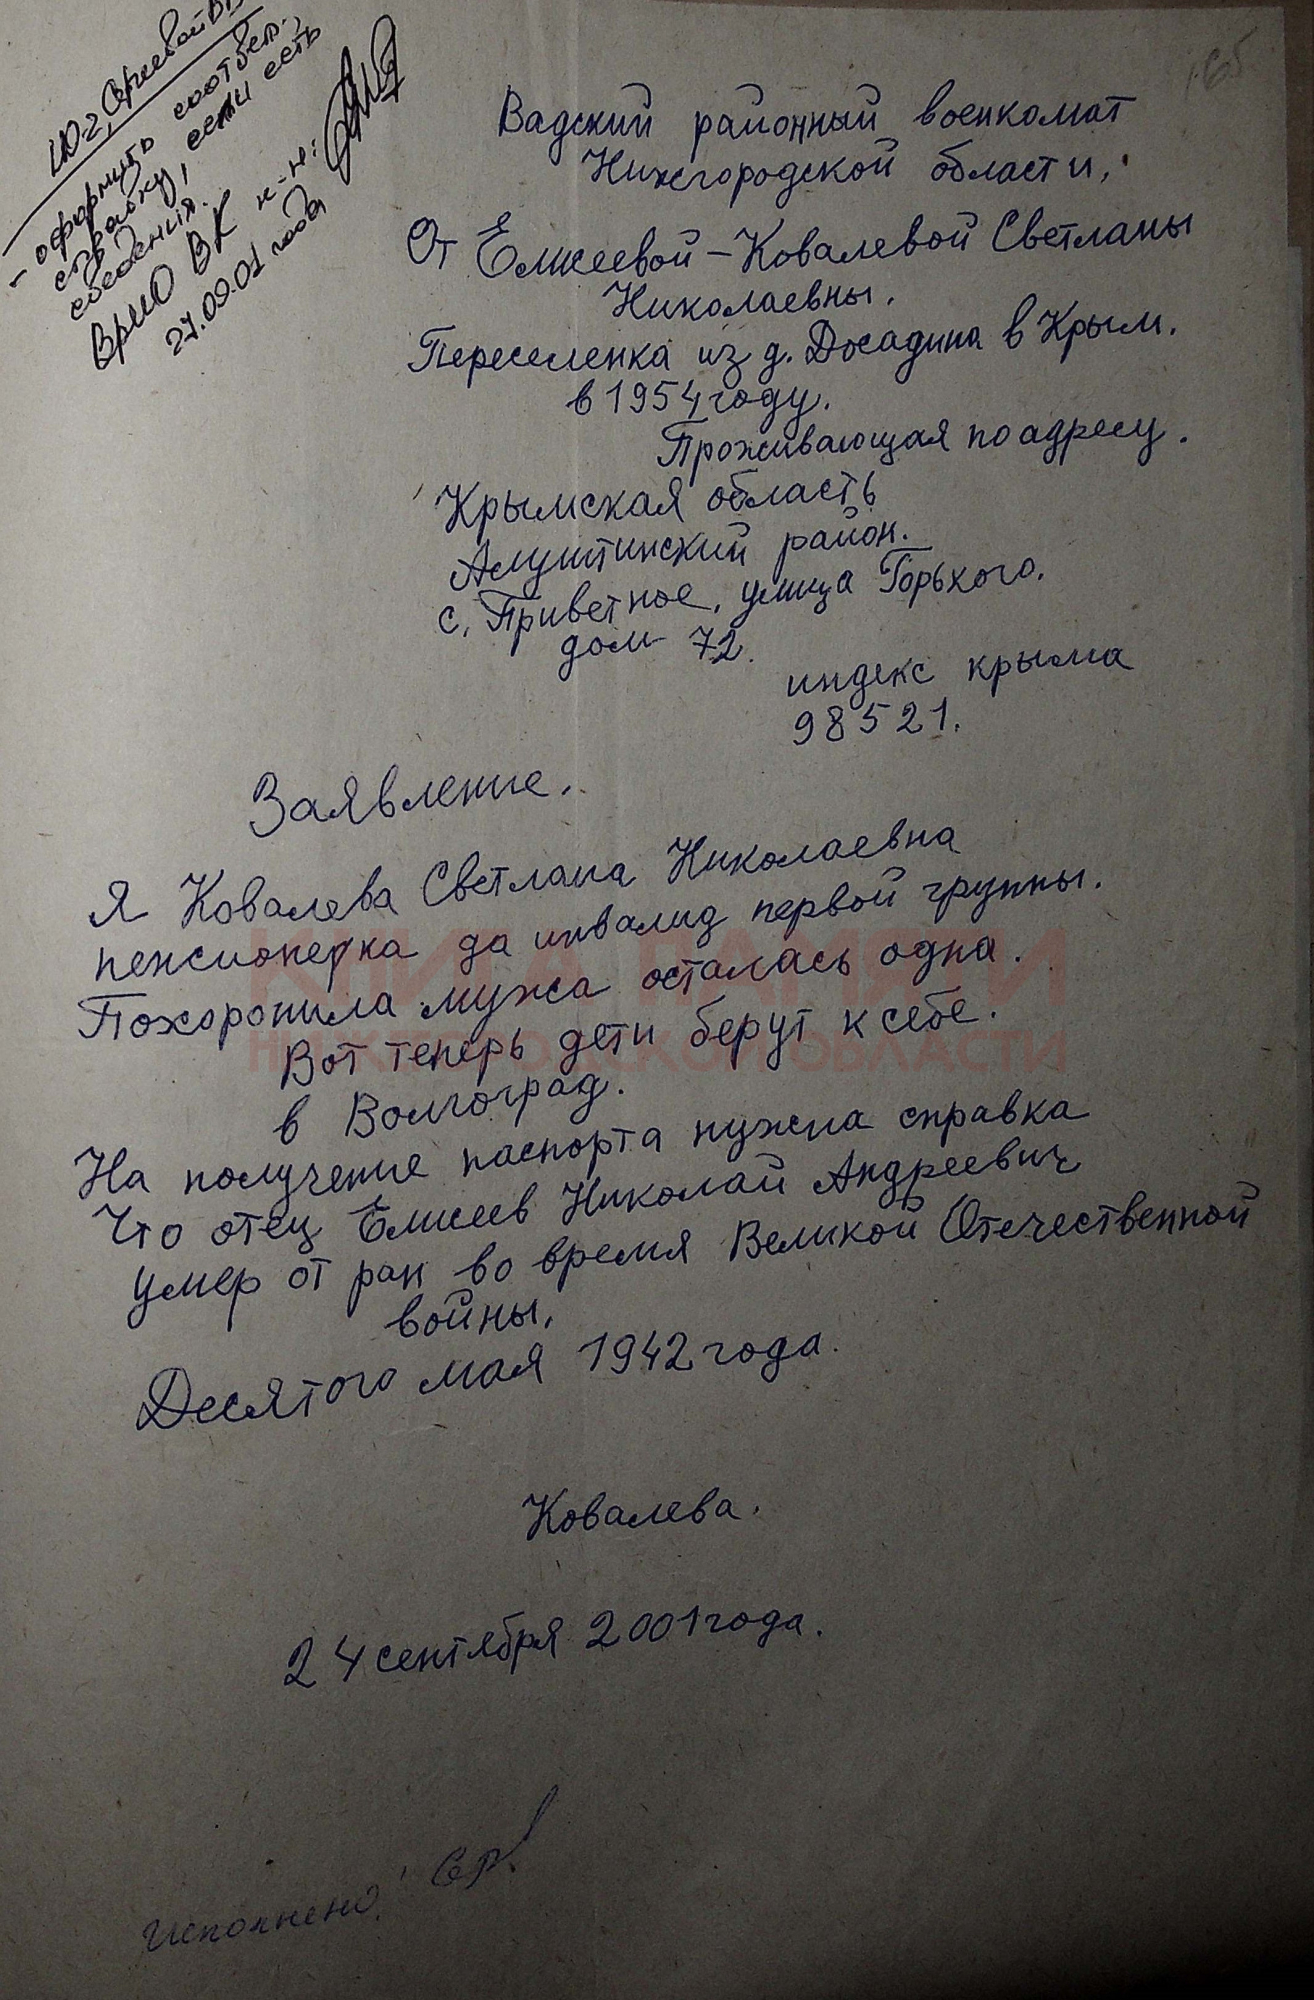 - оформить соответ.,
справку, если есть
сведения.
ВрИО ВК к-н:
27.09.01 года
165
Вадский районный военкомат
Нижгородской области,
От Елисеевой - Ковалевой Светланы
Николаевны.
Переселенка из д. Досадина в Крым.
в 1954 году.
Проживающая по адресу.
Крымская область
Алуштинский район.
с. Приветное, улица Горького.
дом 72.
индекс крыма
98521.
Заявление.
Я Ковалева Светлана Николаевна
пенсионерка да инвалид первой группы.
Похоронила мужа осталась одна.
Вот теперь дети берут к себе.
в Волгоград.
На получение паспорта нужна справка
Что отец Елисеев Николай Андреевич
умер от ран во время Великой Отечественной
войны.
Десятого мая 1942 года.
Ковалева.
24 сентября 2001 года.
Исполнено.
КНИГА ПАМЯТИ
НИЖЕГОРОДСКОЙ ОБЛАСТИ